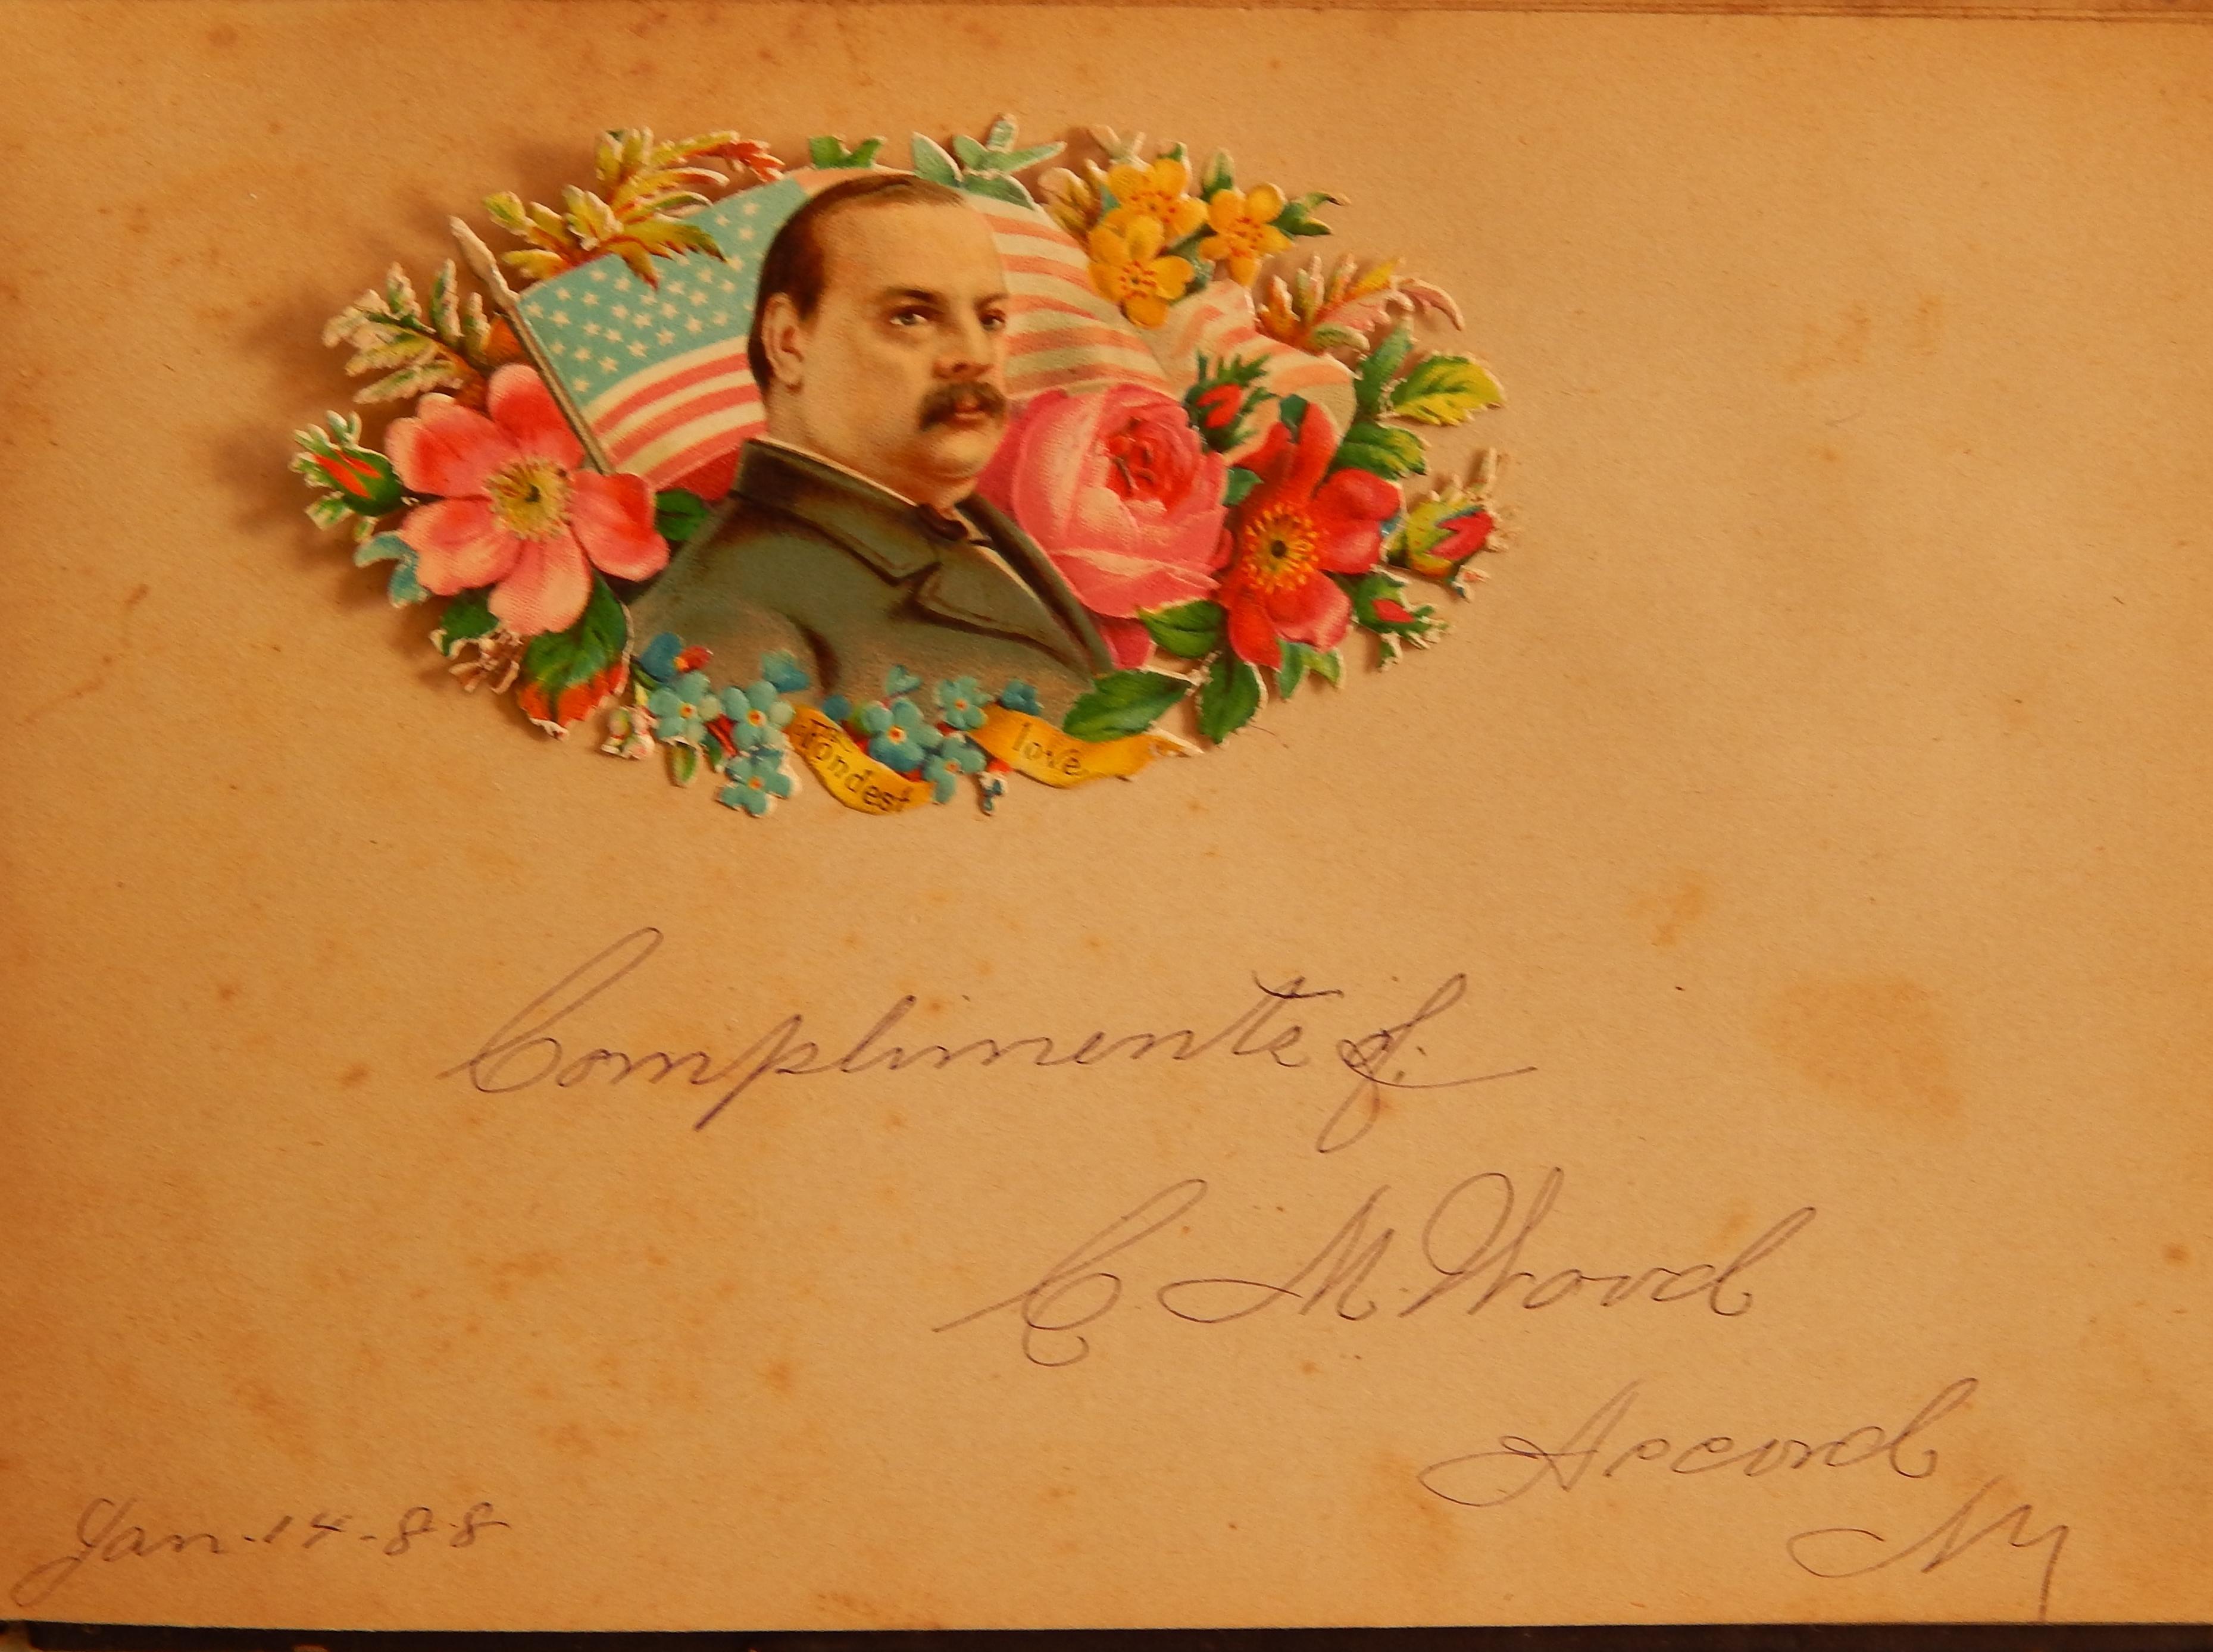 Fondest love
Compliments of.
C. M. Wood
Accord
NY
Jan. 14 - 88